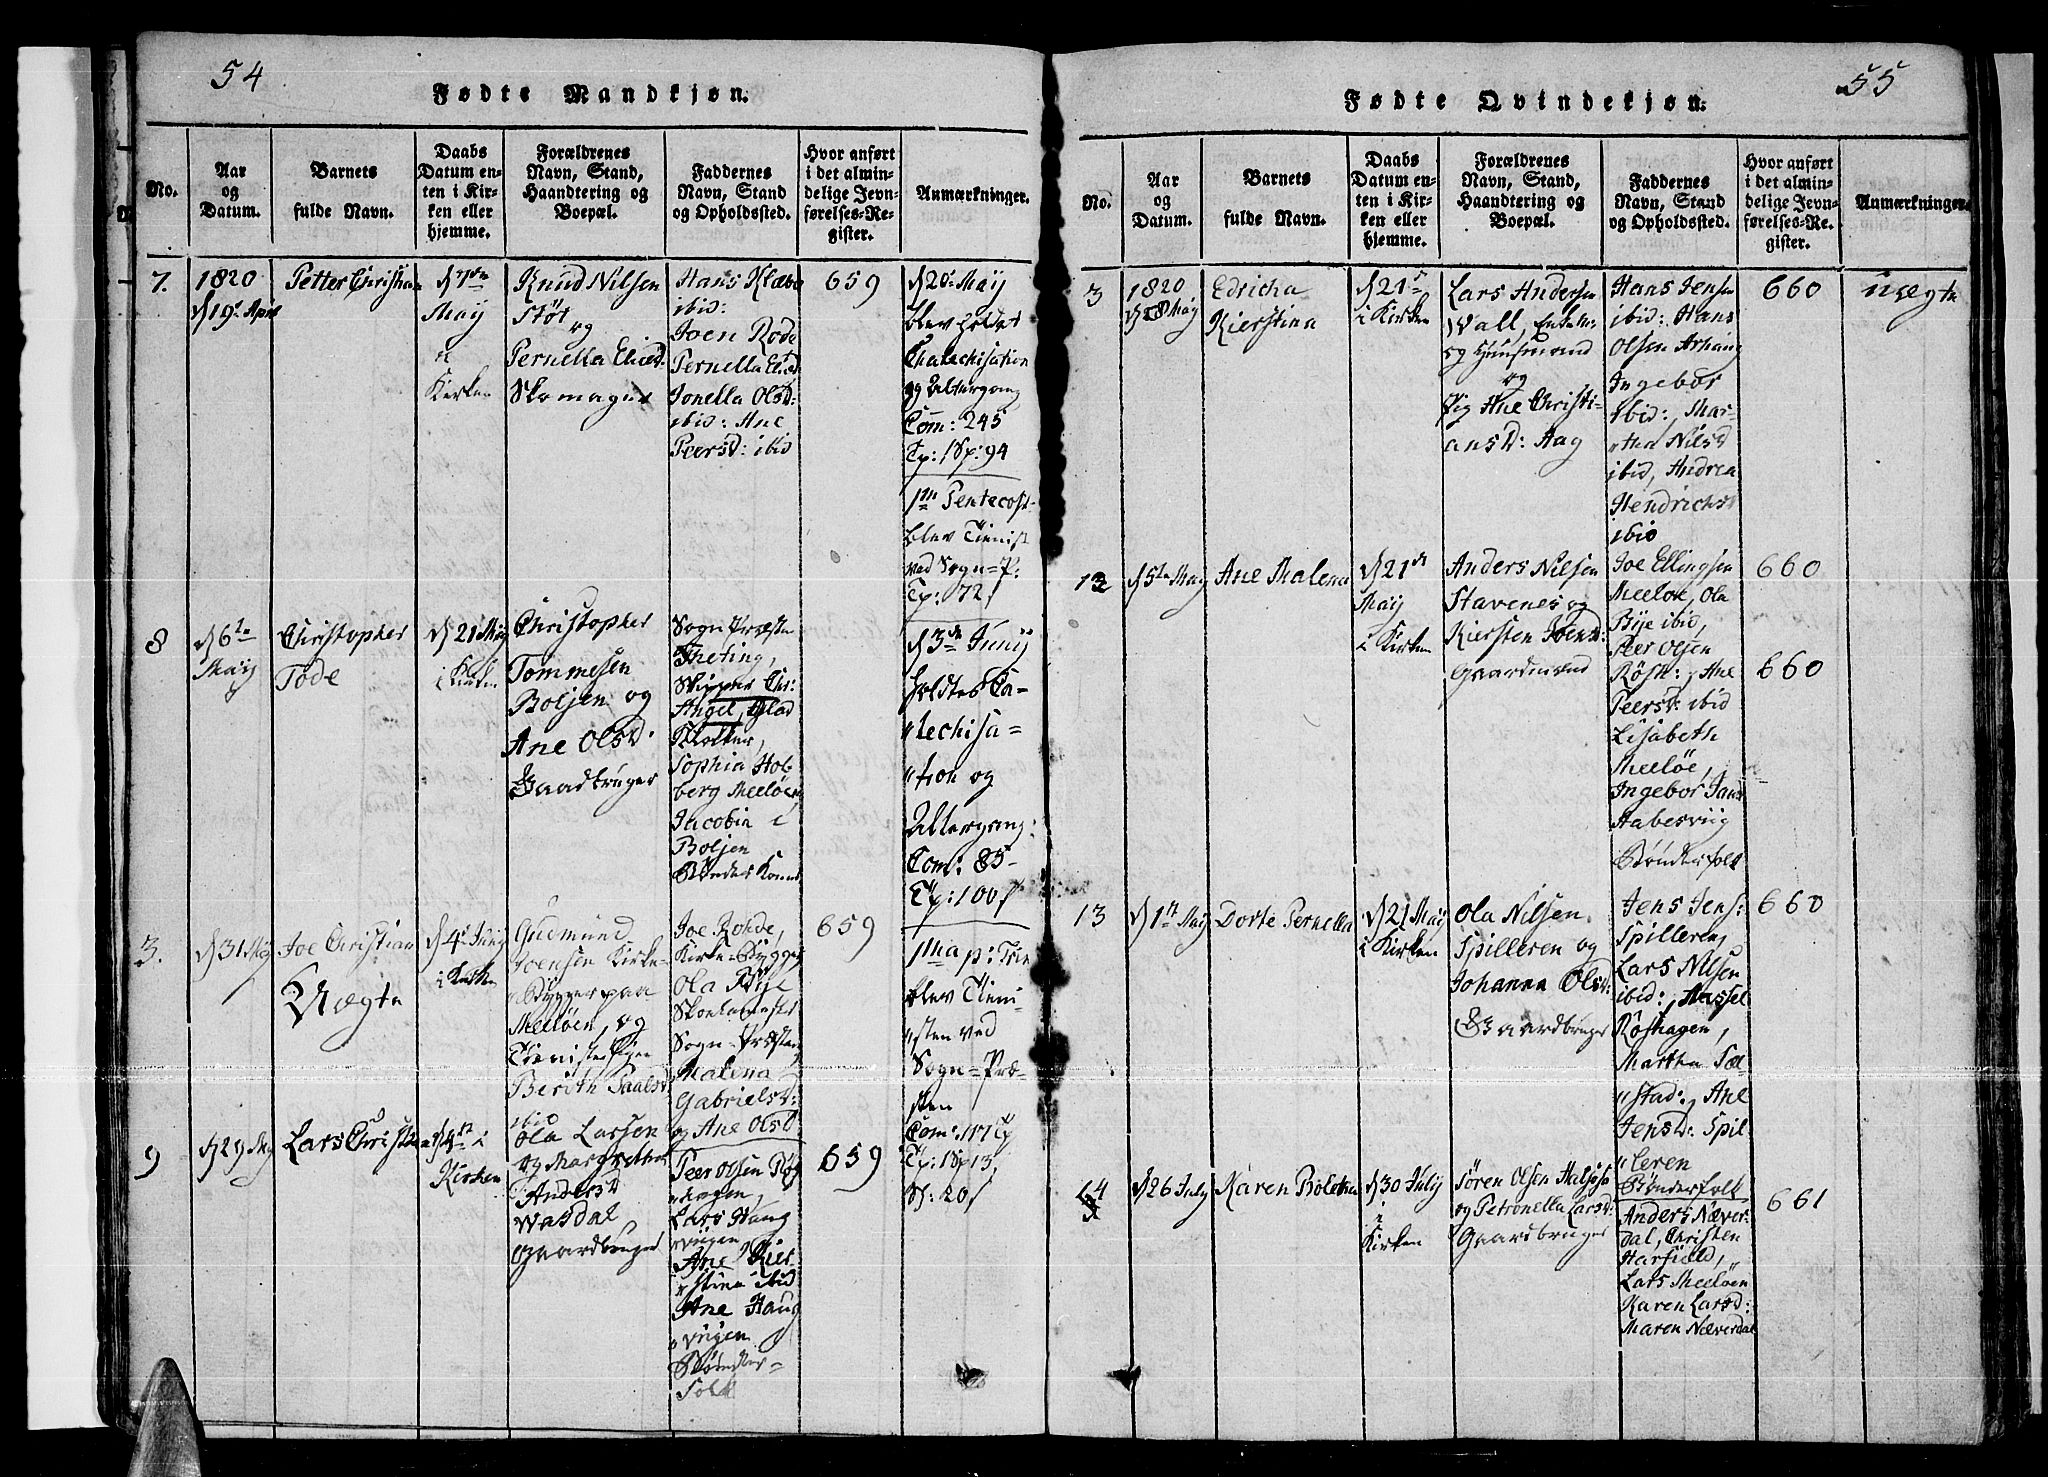 54
Fødte Mandkjøn.
No.
Aar
og
Datum.
Barnets
fulde Navn.
Daabs
Datum en-
ten i Kir-
ken eller
hjemme.
Forældrenes
Navn, Stand,
Haandtering og
Boepæl.
Faddernes
Navn, Stand
og Opholdssted.
Hvor anført
i det almin-
delige Jevn-
førelses-Re-
gister.
Anmærkninger.
7.
1820
d 19de April
Petter Christian
d 7de
Maij
i
Kirken
Knud Nilsen
Støt
og
Pernella Elied:
Skomager
Hans Klæbo
ibid:
Joen Rode
Pernella
Jonella Olsd:
ibid: Ane
Peersd: ibid
659
d 20de Maij
blev holdet
Chatechisation
og Altergang
Com: 245
Tp: 1 Sp: 94
1ste Pentecost
blev Tienist
ved Sogn=P:
Tp: 72
8
d 6te
Maij
Christopher
Tode
d 21 Maij
i Kirken
Christopher
Tommesen
Boljen og
Ane Olsd:
Gaardbruger
Sogn Præsten
Theting,
Skipper Chr:
Angel,
Klokker,
Sophia Hol
berg Meeløen
Jacobin i
Boljen
Bønder Koner
d 3de Junij
holdtes Ca-
techisa-
tion og
Altergang:
Com: 85-
Tp: 100
3.
d 31 Maij
Joe Christian
Uægte
d 4de Junij
i Kirken
Gudmund
Joensen Kirke-
Bygger paa
Meeløen, og
Tieniste Pigen
Berith Paalsd:
ibid
Joe Rohde,
Kirke-Bygger
Ola Bye
Skolemester
Sogn-Præsten
Malena
Gabrielsd:
og Ane Olsd
659
blev Tieni-
sten ved
Sogn=Præ-
sten
Com: 117
Tp: 1 Sp 13,
9
d 29 Maij
Lars Christian
d 4de i
Kirken
Ola Larsen
og Margretha
Andersd
Wasdal
Gaardbruger
Peer Olsen Røs
hagen,
Lars Haug
vigen
Ane Kier
stina ibid
Ane Haug
vigen
Bønder-
Folk
659
55
Fødte Qvindekjøn.
No.
Aar
og
Datum.
Barnets
fulde Navn.
Daabs
Datum en-
ten i Kir-
ken eller
hjemme.
Forældrenes
Navn, Stand,
Haandtering og
Boepæl.
Faddernes
Navn, Stand
og Opholdssted.
Hvor anført
i det almin-
delige Jevn-
førelses-Re-
gister.
Anmærkninger.
3
1820
d 8 Maij
Edricka
Kierstina
d 21de
i Kirken
Lars Andersen
Wall, Enkem:
og Huusmand
og
Pig Ane Christi-
ansd: Aag
Hans Jensen
ibid: Hans
Olsen Arhaug
Ingebor
ibid:, Mar-
tha Nilsd
ibid, Andrea
Hendrichsd
ibid
660
uægte
12
d 5te Maij
Ane Malena
d 21de
Maij
i Kirken
Anders Nilsen
Stavenes og
Kiersten Joensd:
Gaardmand
Joe Ellingsen
Meeløe, Ola
Bye ibid,
Peer Olsen
Røsh:, Ane
Peersd: ibid
Lisabeth
Meeløe,
Ingebor Jansd
Habesviig
Bønderfolk
660
660
13
d 1ste Maij
Dorte Pernella
d 21 Maij
i Kirken
Ola Nilsen
Spilleren og
Johanna Olsd:
Gaardbruger
Jens Jens:
Spilleren,
Lars Nilsen
ibid:, Hassel
Røshagen,
Martha Sæ-
stad:, Ane
Jensd: Spil
leren
Bønderfolk
660
14
d 26 July
Karen Boletha
d 30 Julij
i
Kirken
Søren Olsen Halsøe
og Petronella Larsd:
Gaardbruger
Anders Næver-
dal, Christen
Harfield,
Lars Meeløen
Karen Larsd:
Maren Næverdal
661